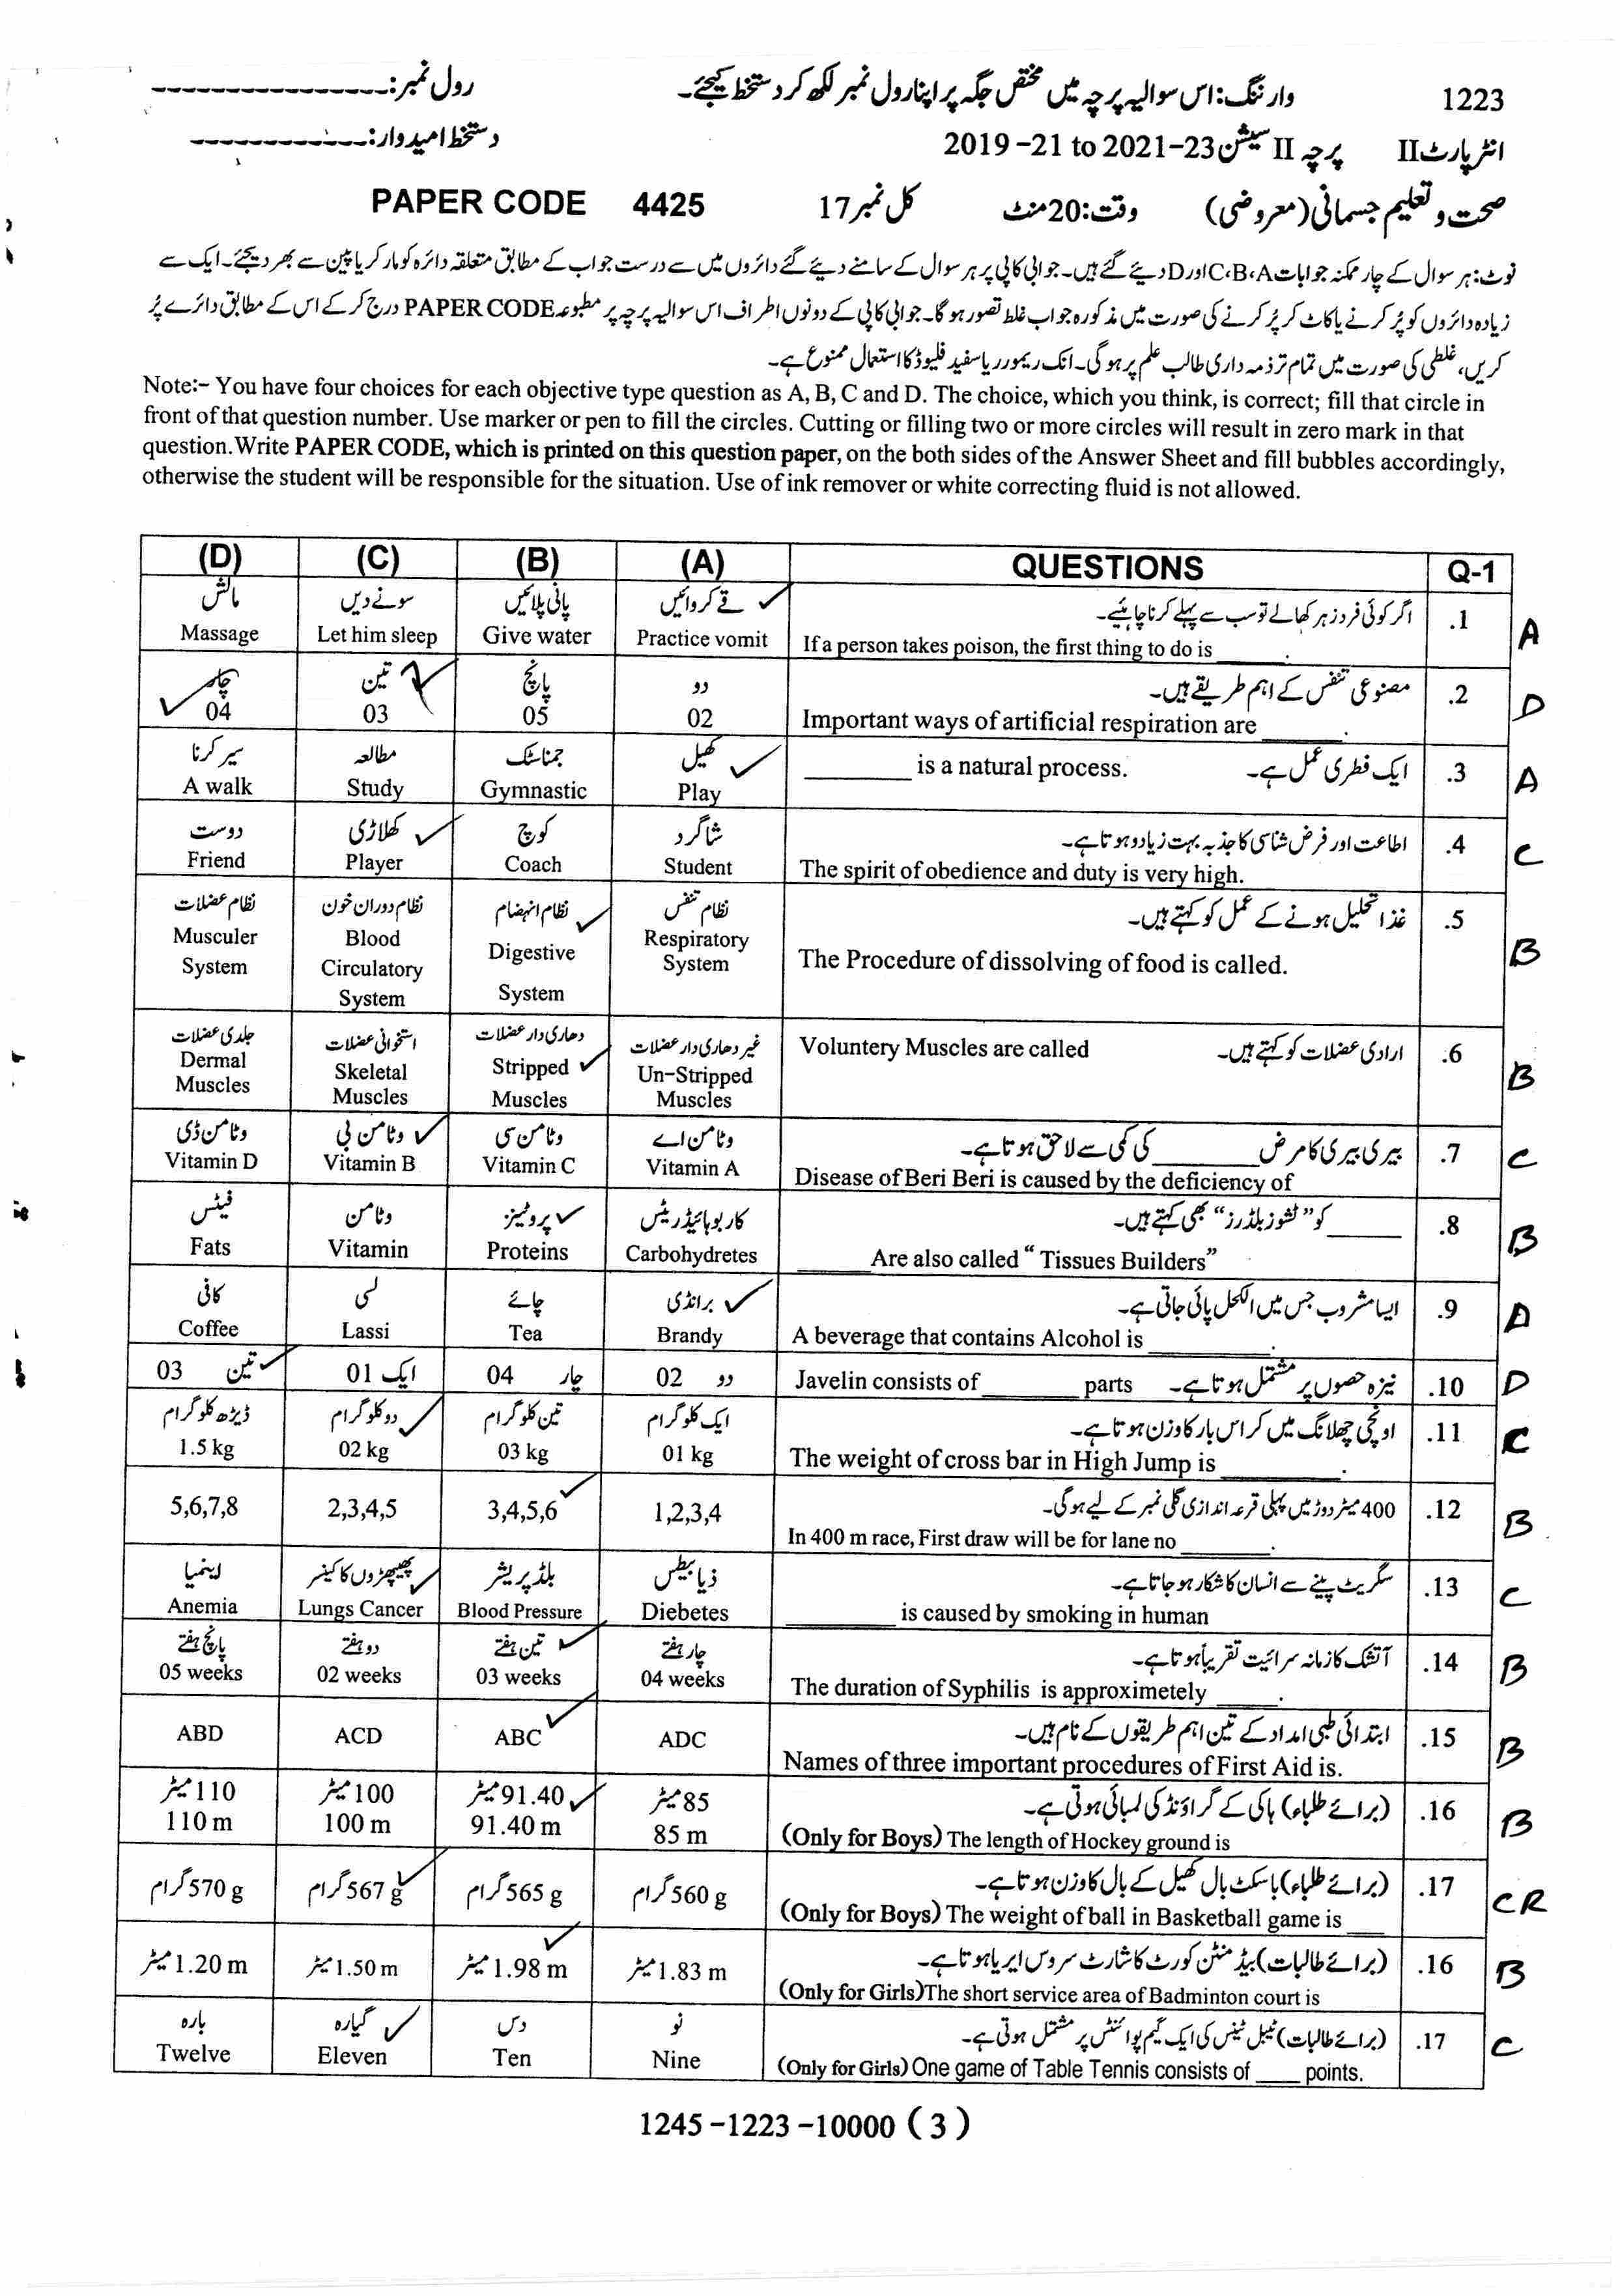 1223 وارننگ: اس سوالیہ پرچہ میں مختص جگہ پر اپنا رول نمبر لکھ کر دستخط کیجئے۔ رول نمبر:----------------
انٹر پارٹ II پرچہ II سیشن 2019-21 to 2021-23 دستخط امیدوار:------------
صحت و تعلیم جسمانی (معروضی) وقت:20 منٹ کل نمبر 17 PAPER CODE 4425
نوٹ: ہر سوال کے چار ممکنہ جوابات C،B،A اور D دیئے گئے ہیں۔ جوابی کاپی پر ہر سوال کے سامنے دیئے گئے دائروں میں سے درست جواب کے مطابق متعلقہ دائرہ کو مارکر یا پین سے بھر دیجئے۔ ایک سے
زیادہ دائروں کو پُر کرنے یا کاٹ کر پُر کرنے کی صورت میں مذکورہ جواب غلط تصور ہوگا۔ جوابی کاپی کے دونوں اطراف اس سوالیہ پرچہ پر مطبوعہ PAPER CODE درج کر کے اس کے مطابق دائرے پُر
کریں، غلطی کی صورت میں تمام تر ذمہ داری طالب علم پر ہوگی۔ انک ریمور یا سفید فلیوڈ کا استعمال ممنوع ہے۔
Note:- You have four choices for each objective type question as A, B, C and D. The choice, which you think, is correct; fill that circle in
front of that question number. Use marker or pen to fill the circles. Cutting or filling two or more circles will result in zero mark in that
question. Write PAPER CODE, which is printed on this question paper, on the both sides of the Answer Sheet and fill bubbles accordingly,
otherwise the student will be responsible for the situation. Use of ink remover or white correcting fluid is not allowed.
(D) (C) (B) (A) QUESTIONS Q-1
مالش سونے دیں پانی پلائیں قے کروائیں اگر کوئی فرد زہر کھا لے تو سب سے پہلے کرنا چاہیئے۔ .1
Massage Let him sleep Give water Practice vomit If a person takes poison, the first thing to do is ______. A
چار تین پانچ دو مصنوعی تنفس کے اہم طریقے ہیں۔ .2
04 03 05 02 Important ways of artificial respiration are ______. D
سیر کرنا مطالعہ جمناسٹک کھیل ________ is a natural process. ایک فطری عمل ہے۔ .3
A walk Study Gymnastic Play A
دوست کھلاڑی کوچ شاگرد اطاعت اور فرض شناسی کا جذبہ بہت زیادہ ہوتا ہے۔ .4
Friend Player Coach Student The spirit of obedience and duty is very high. C
نظام عضلات نظام دوران خون نظام انہضام نظام تنفس غذا تحلیل ہونے کے عمل کو کہتے ہیں۔ .5
Musculer Blood Digestive Respiratory
System Circulatory System System The Procedure of dissolving of food is called. B
System
جلدی عضلات استخوانی عضلات دھاری دار عضلات غیر دھاری دار عضلات Voluntery Muscles are called ارادی عضلات کو کہتے ہیں۔ .6
Dermal Skeletal Stripped Un-Stripped B
Muscles Muscles Muscles Muscles
وٹامن ڈی وٹامن بی وٹامن سی وٹامن اے بیری بیری کا مرض ________ کی کمی سے لاحق ہوتا ہے۔ .7
Vitamin D Vitamin B Vitamin C Vitamin A Disease of Beri Beri is caused by the deficiency of C
فیٹس وٹامن پروٹینز کاربوہائیڈریٹس ______ کو ”ٹشوز بلڈرز“ بھی کہتے ہیں۔ .8
Fats Vitamin Proteins Carbohydretes ______ Are also called “ Tissues Builders” B
کافی لسی چائے برانڈی ایسا مشروب جس میں الکحل پائی جاتی ہے۔ .9
Coffee Lassi Tea Brandy A beverage that contains Alcohol is ________. A
03 تین 01 ایک 04 چار 02 دو Javelin consists of ________ parts نیزہ حصوں پر مشتمل ہوتا ہے۔ .10 D
ڈیڑھ کلوگرام دو کلوگرام تین کلوگرام ایک کلوگرام اونچی چھلانگ میں کراس بار کا وزن ہوتا ہے۔ .11
1.5 kg 02 kg 03 kg 01 kg The weight of cross bar in High Jump is ________. C
5,6,7,8 2,3,4,5 3,4,5,6 1,2,3,4 400 میٹر دوڑ میں پہلی قرعہ اندازی گلی نمبر کے لیے ہوگی۔ .12
In 400 m race, First draw will be for lane no ________. B
اینمیا پھیپھڑوں کا کینسر بلڈ پریشر ذیابیطس سگریٹ پینے سے انسان کا شکار ہو جاتا ہے۔ .13
Anemia Lungs Cancer Blood Pressure Diebetes ________ is caused by smoking in human C
پانچ ہفتے دو ہفتے تین ہفتے چار ہفتے آتشک کا زمانہ سرائیت تقریباً ہوتا ہے۔ .14
05 weeks 02 weeks 03 weeks 04 weeks The duration of Syphilis is approximetely _____. B
ABD ACD ABC ADC ابتدائی طبی امداد کے تین اہم طریقوں کے نام ہیں۔ .15
Names of three important procedures of First Aid is. B
110 میٹر 100 میٹر 91.40 میٹر 85 میٹر (برائے طلباء) ہاکی کے گراؤنڈ کی لمبائی ہوتی ہے۔ .16
110 m 100 m 91.40 m 85 m (Only for Boys) The length of Hockey ground is B
570 g گرام 567 g گرام 565 g گرام 560 g گرام (برائے طلباء) باسکٹ بال کھیل کے بال کا وزن ہوتا ہے۔ .17
(Only for Boys) The weight of ball in Basketball game is ___ CR
1.20 m میٹر 1.50 m میٹر 1.98 m میٹر 1.83 m میٹر (برائے طالبات) بیڈمنٹن کورٹ کا شارٹ سروس ایریا ہوتا ہے۔ .16
(Only for Girls)The short service area of Badminton court is B
بارہ گیارہ دس نو (برائے طالبات) ٹیبل ٹینس کی ایک گیم پوائنٹس پر مشتمل ہوتی ہے۔ .17
Twelve Eleven Ten Nine (Only for Girls) One game of Table Tennis consists of ____ points. C
1245 -1223 -10000 ( 3 )